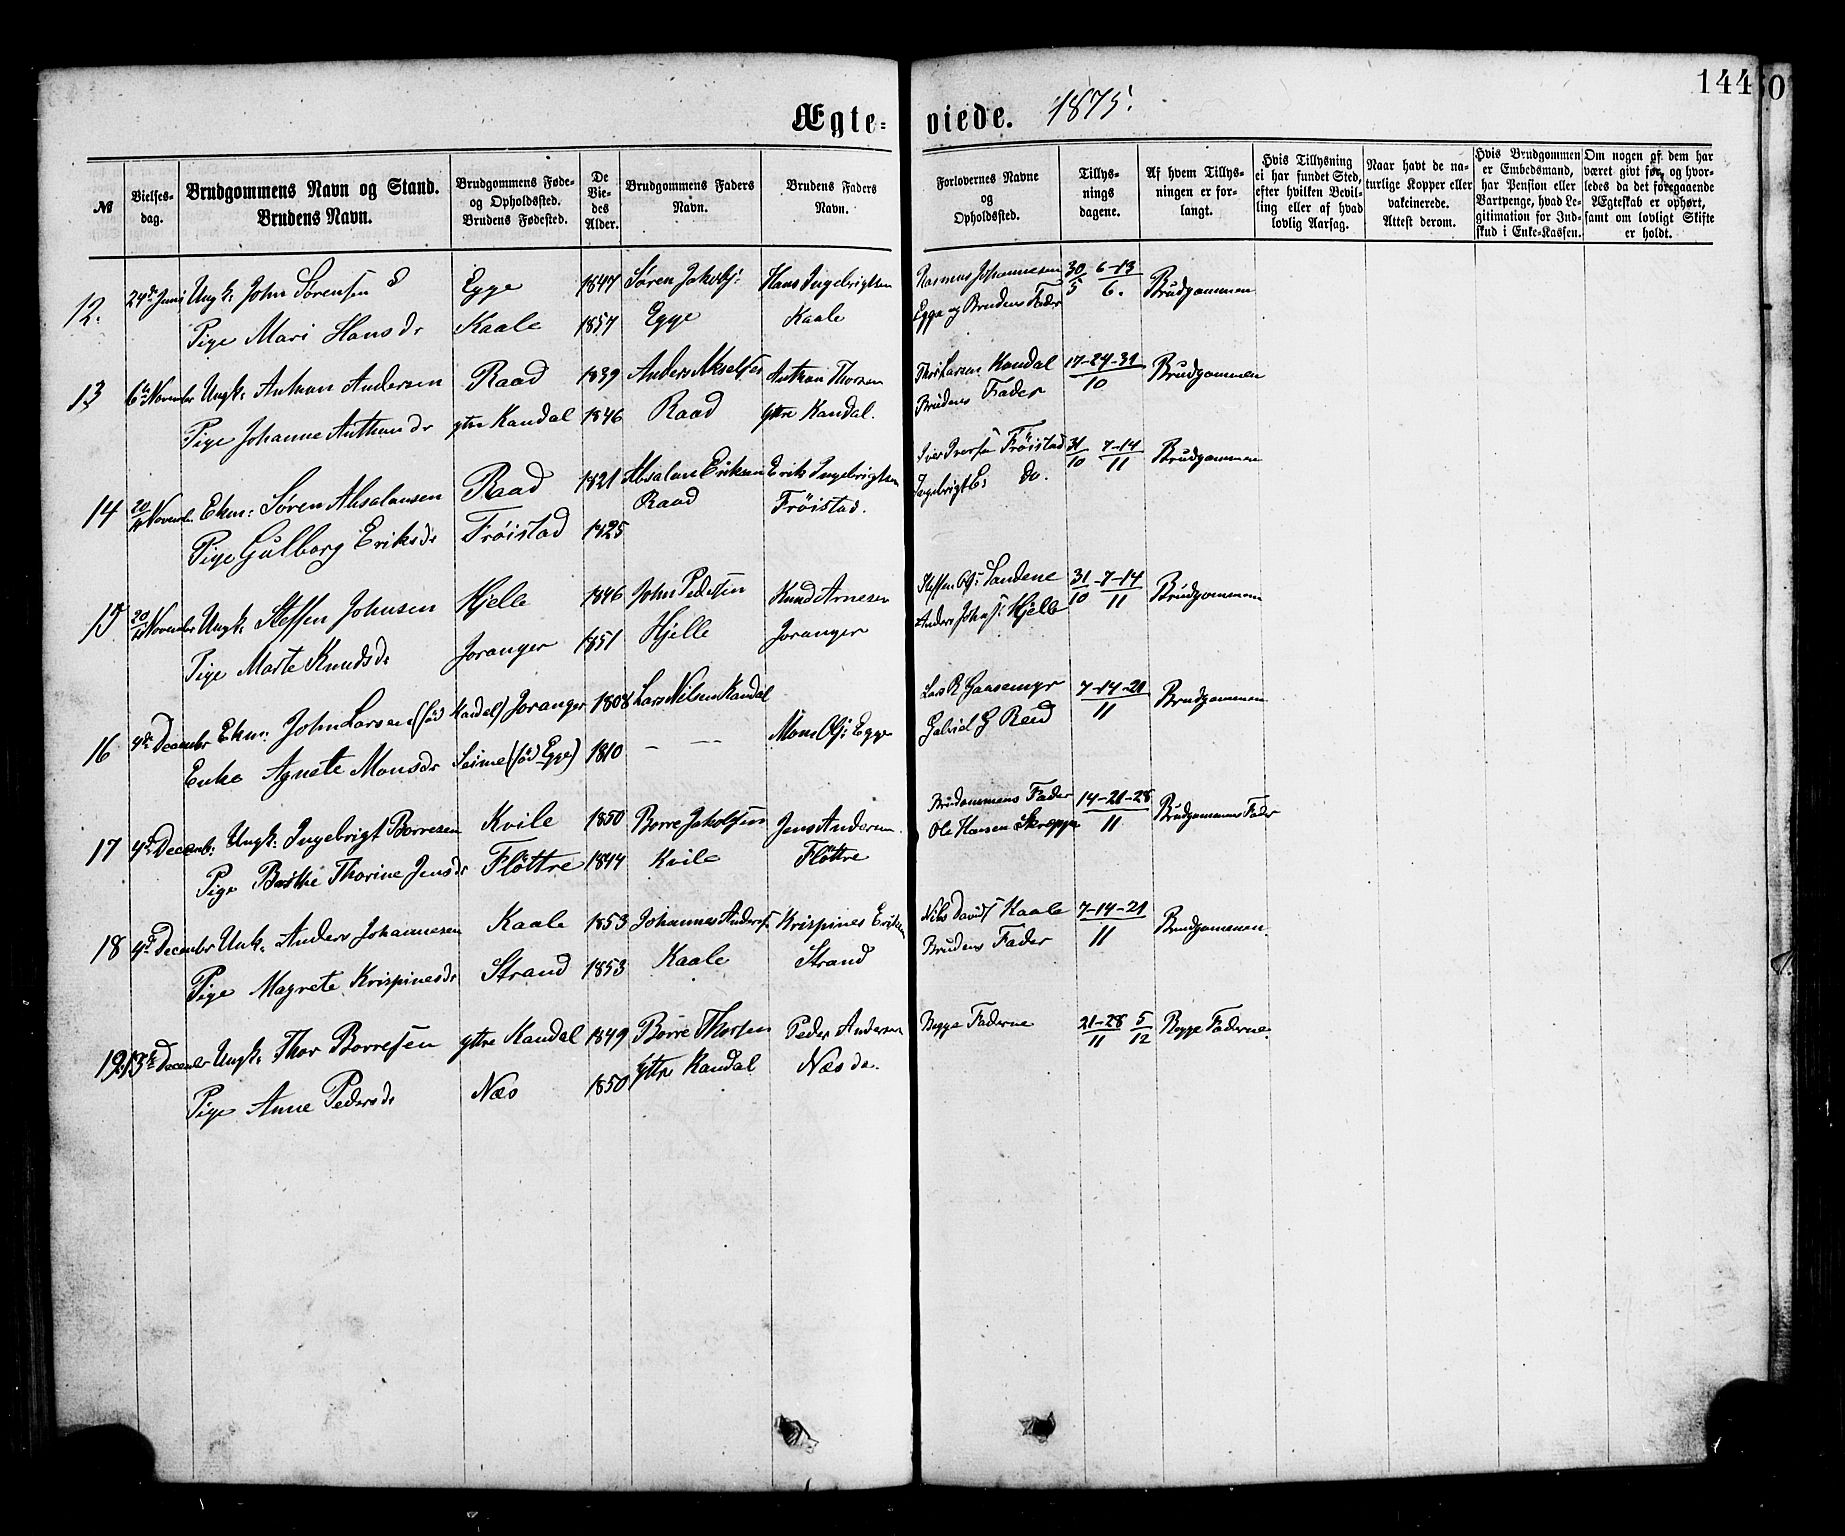 144
Ægte- viede. 1875.
№
Vielses-dag.
Brudgommens Navn og Stand. Brudens Navn.
Brudgommens Føde- og Opholdssted. Brudens Fødested.
De Vie-des Alder.
Brudgommens Faders Navn.
Brudens Faders Navn.
Forlovernes Navne og Opholdssted.
Tillys-nings dagene.
Af hvem Tillys-ningen er for-langt.
Hvis Tillysning ei har fundet Sted, efter hvilken Bevil-ling eller af hvad lovlig Aarsag.
Naar havt de na-turlige Kopper eller vakcinerede. Attest derom.
Hvis Brudgommen er Embedsmand, har Pension eller Vartpenge, hvad Le-gitimation for Ind-skud i Enke-Kassen.
Om nogen af dem har været givt før, og hvor-ledes da det foregaaende Ægteskab er ophørt, samt om lovligt Skifte er holdt.
12. 24de Juni Ungk: John Sørensen Egge 1847 Søren Jakobs: Hans Ingebrigtsen Rasmus Johannesen 30/5 6-13/6. Brudgommen
Pige Mari Hansdr Kaale 1857 Egge Kaale Egge og Brudens Fader
13 6te November Ungk: Anthon Andersen Raad 1839 Anders Akselsen Anthon Thorsen Thor Larsen Kandal 17-24-31/10 Brudgommen
Pige Johanne Anthondr ytre Kandal 1846 Raad Yttre Kandal. Brudens Fader
14 20/11 Novemb. Ekm: Søren Absalonsen Raad 1821 Absalon Eriksen Erik Ingebrigtsen Iver Iversen Frøistad 31/10 7-14/11 Brudgommen
Pige Gulborg Eriksdr Frøistad 1825 Raad Frøistad. Ingebrigt E: do.
15 20/11 November Ungk: Steffen Johnsen Hjelle 1846 John Pedersen Knud Arnesen Steffen Ols: Sandene 31/10 7-14/11 Brudgommen
Pige Marte Knudsdr Joranger 1851 Hjelle Joranger Anders Johns: Hjelle
16 4de December Ekm. John Larsen (fød Kandal) Joranger 1808 Lars Nilsen Kandal Lars R Gaasemyr 7-14-21/11 Brudgommen
Enke Agnete Monsdr Seime (fød Egge) 1810 — — Mons Ols: Egge Gabriel G Reed
17 4de Decemb: Ungk: Ingebrigt Børresen Kvile 1850 Børre Jakobsen Jens Andersen Brudgommens Fader 14-21-28/11 Brudgommens Fader
Pige Berthe Thorine Jensdr Fløttre 1844 Kvile Fløttre Ole Hansen Skreppa
18 4de December Unk: Anders Johannesen Kaale 1853 Johannes Anders: Krispines Eriksen Nils Davids Kaale 7-14-21/11 Brudgommen.
Pige Magrete Krispinesdr Strand 1853 Kaale Strand Brudens Fader
19 13de December Ungk: Thor Børresen yttre Kandal 1849 Børre Thorsen Peder Andersen Begge Faderne 21-28/11 5/12 Begge Faderne.
Pige Anne Pedersdr Næs 1850 Yttre Kandal Næs